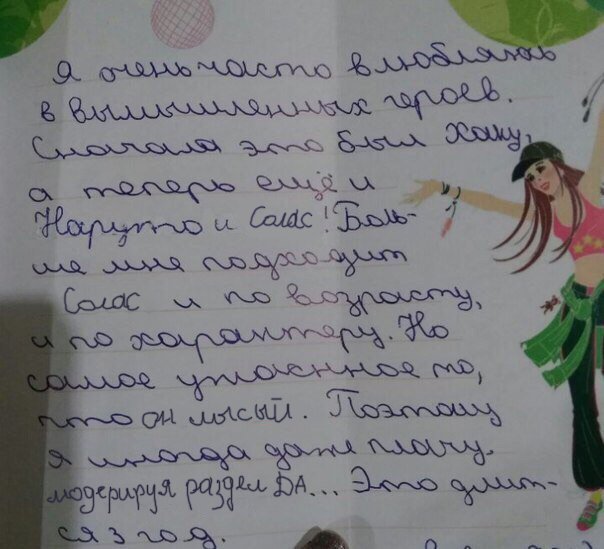 Я очень часто влюбляюсь
в вымышленных героев.
Сначала это был Хаку,
а теперь ещё и
Наруто и Солас! Боль-
ше мне подходит
Солас и по возрасту,
и по характеру. Но
самое ужасное то,
что он лысый. Поэтому
я иногда даже плачу.
модерируя раздел DA... Это длит-
ся 3 год.